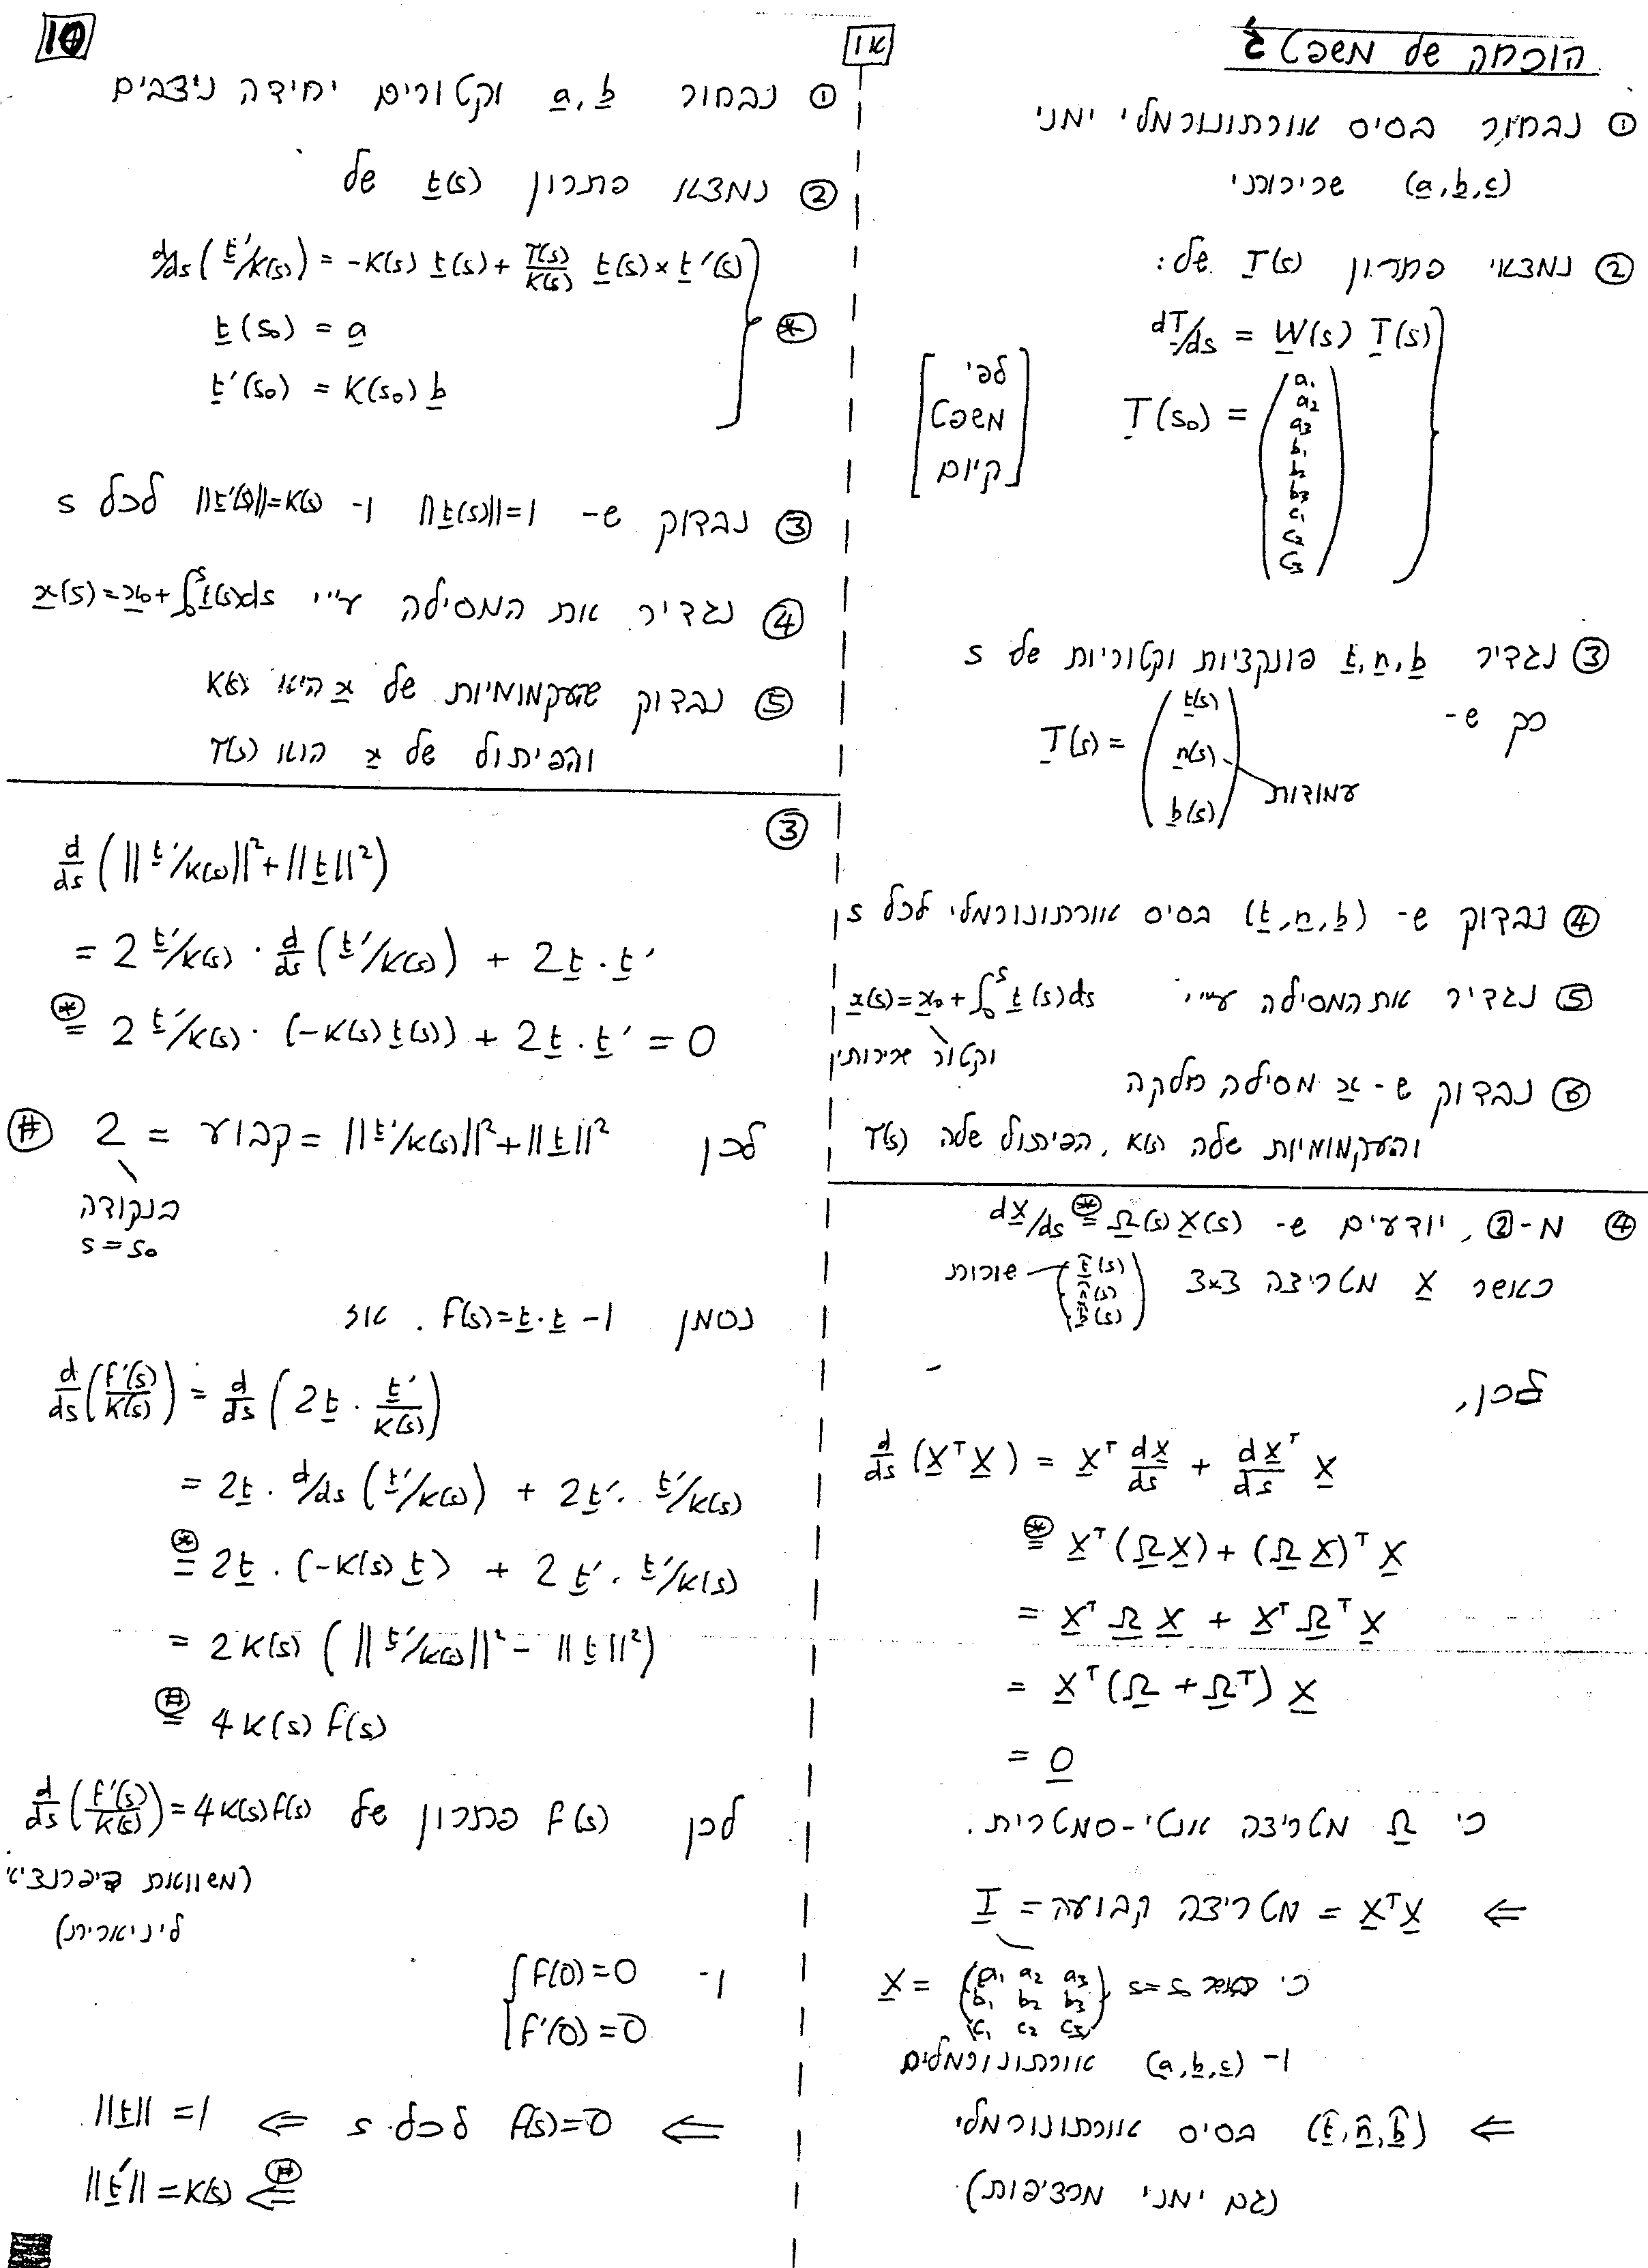 הוכחה של משפט ג
1א
① נבחור בסיס אורתונורמלי ימני
(a,b,c) שרירותי
② נמצאי פתרון T(s) של:
dT/ds = W(s) T(s)
T(s₀) = (a₁ a₂ a₃ b₁ b₂ b₃ c₁ c₂ c₃)
[לפי משפט קיום]
③ נגדיר t,n,b פונקציות וקטוריות של s
כך ש-
T(s) = (t(s) n(s) b(s))
עמודות
④ נבדוק ש- (t,n,b) בסיס אורתונורמלי לכל s
⑤ נגדיר את המסילה ע"י x(s)=x₀+∫₀ˢ t(s)ds
וקטור שרירותי
⑥ נבדוק ש-x מסילה חלקה
והעקמומיות שלה κ(s), הפיתול שלה τ(s)
④ מ-②, יודעים ש- dX/ds ⊛= Ω(s)X(s)
כאשר X מטריצה 3x3 (t̂(s) n̂(s) b̂(s)) שורות
לכן,
d/ds (XᵀX) = Xᵀ dX/ds + dXᵀ/ds X
⊛= Xᵀ(ΩX) + (ΩX)ᵀX
= XᵀΩX + XᵀΩᵀX
= Xᵀ(Ω+Ωᵀ)X
= 0
כי Ω מטריצה אנטי-סמטרית.
⇐ XᵀX = מטריצה קבועה = I
כי כאשר s=s₀ X = (a₁ a₂ a₃ b₁ b₂ b₃ c₁ c₂ c₃)
ו- (a,b,c) אורתונורמלים
⇐ (t̂,n̂,b̂) בסיס אורתונורמלי
(גם ימני מרציפות)
10
① נבחור a,b וקטורים יחידה ניצבים
② נמצא פתרון t(s) של
d/ds(t'/κ(s)) = -κ(s) t(s) + τ(s)/κ(s) t(s) × t'(s)
t(s₀) = a
⊛
t'(s₀) = κ(s₀) b
③ נבדוק ש- ||t(s)||=1 ו- ||t'(s)||=κ(s) לכל s
④ נגדיר את המסילה ע"י x(s)=x₀+∫₀ˢ t(s)ds
⑤ נבדוק שהעקמומיות של x היא κ(s)
והפיתול של x הוא τ(s)
③
d/ds (||t'/κ(s)||²+||t||²)
= 2 t'/κ(s) · d/ds (t'/κ(s)) + 2t · t'
⊛= 2 t'/κ(s) · (-κ(s)t(s)) + 2t · t' = 0
לכן ||t'/κ(s)||²+||t||² = קבוע = 2 (#)
בנקודה
s=s₀
נסמן f(s)=t·t -1. אז
d/ds (f'(s)/κ(s)) = d/ds (2t · t'/κ(s))
= 2t · d/ds (t'/κ(s)) + 2t' · t'/κ(s)
⊛= 2t · (-κ(s) t) + 2t' · t'/κ(s)
= 2κ(s) (||t'/κ(s)||² - ||t||²)
(#)= 4κ(s) f(s)
לכן f(s) פתרון של d/ds (f'(s)/κ(s)) = 4κ(s)f(s)
(משוואת דיפרנציאי
לינארית)
ו- { f(0)=0
f'(0)=0
⇐ f(s)=0 לכל s ⇐ ||t||=1
(#)⇐ ||t'||=κ(s)